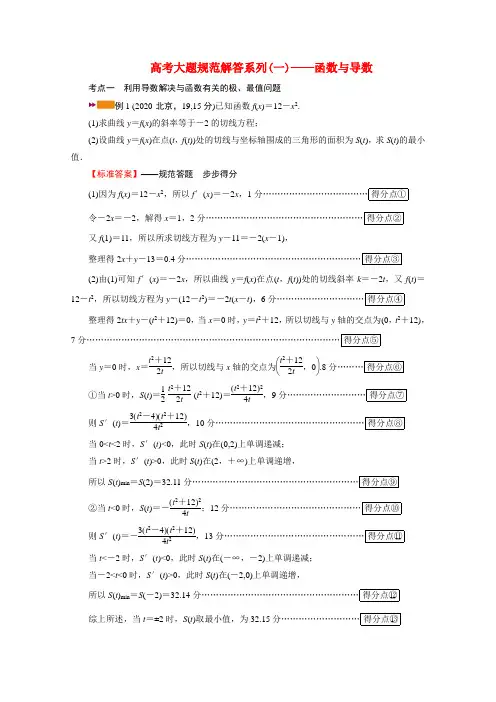 高考大题规范解答系列(一)——函数与导数
考点一 利用导数解决与函数有关的极、最值问题
例1 (2020·北京，19,15分)已知函数f(x)＝12－x².
(1)求曲线y＝f(x)的斜率等于－2的切线方程；
(2)设曲线y＝f(x)在点(t，f(t))处的切线与坐标轴围成的三角形的面积为S(t)，求S(t)的最小
值．
【标准答案】——规范答题 步步得分
(1)因为f(x)＝12－x²，所以f′(x)＝－2x，1分………………………………得分点①
令－2x＝－2，解得x＝1，2分………………………………………………得分点②
又f(1)＝11，所以所求切线方程为y－11＝－2(x－1)，
整理得2x＋y－13＝0.4分……………………………………………………得分点③
(2)由(1)可知f′(x)＝－2x，所以曲线y＝f(x)在点(t，f(t))处的切线斜率k＝－2t，又f(t)＝
12－t²，所以切线方程为y－(12－t²)＝－2t(x－t)，6分…………………………得分点④
整理得2tx＋y－(t²＋12)＝0，当x＝0时，y＝t²＋12，所以切线与y轴的交点为(0，t²＋12)，
7分……………………………………………………………………………得分点⑤
当y＝0时，x＝(t²＋12)/(2t)，所以切线与x轴的交点为((t²＋12)/(2t)，0).8分………得分点⑥
①当t>0时，S(t)＝1/2·(t²＋12)/(2t)·(t²＋12)＝(t²＋12)²/(4t)，9分………………………得分点⑦
则S′(t)＝3(t²－4)(t²＋12)/(4t²)，10分……………………………………………得分点⑧
当0<t<2时，S′(t)<0，此时S(t)在(0,2)上单调递减；
当t>2时，S′(t)>0，此时S(t)在(2，＋∞)上单调递增，
所以S(t)min＝S(2)＝32.11分…………………………………………………得分点⑨
②当t<0时，S(t)＝－(t²＋12)²/(4t)；12分…………………………………………得分点⑩
则S′(t)＝－3(t²－4)(t²＋12)/(4t²)，13分…………………………………………得分点⑪
当t<－2时，S′(t)<0，此时S(t)在(－∞，－2)上单调递减；
当－2<t<0时，S′(t)>0，此时S(t)在(－2,0)上单调递增，
所以S(t)min＝S(－2)＝32.14分………………………………………………得分点⑫
综上所述，当t＝±2时，S(t)取最小值，为32.15分………………………得分点⑬